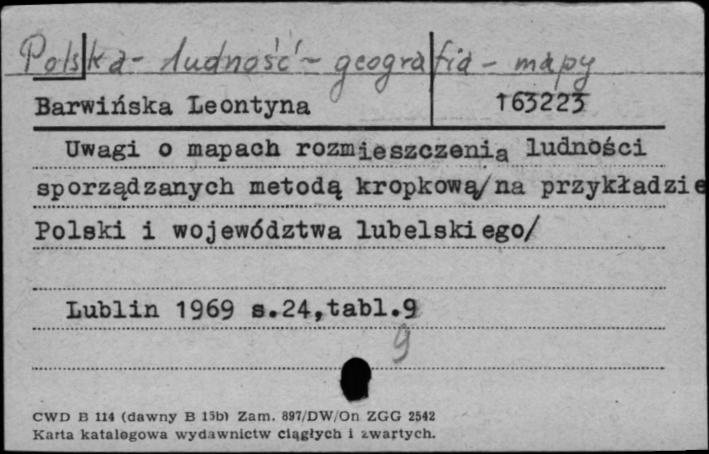 Polska - ludność - geografia - mapy
Barwińska Leontyna 163223
Uwagi o mapach rozmieszczenią ludności
sporządzanych metodą kropkową/na przykładzie
Polski i województwa lubelskiego/
Lublin 1969 s.24,tabl.9
9
CWD B 114 (dawny B 15b) Zam. 897/DW/On ZGG 2542
Karta katalogowa wydawnictw ciągłych i zwartych.